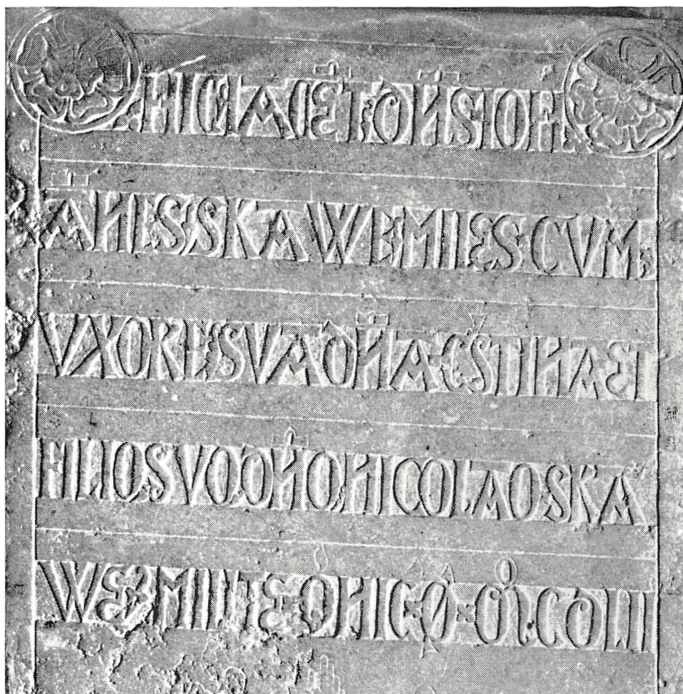 HIC IACET DNS IOH
ANES SKAWE MILES CVM
VXORE SVA DNA CSTINA ET
FILIO SVO DNO NICOLAO SKA
WE MILITE